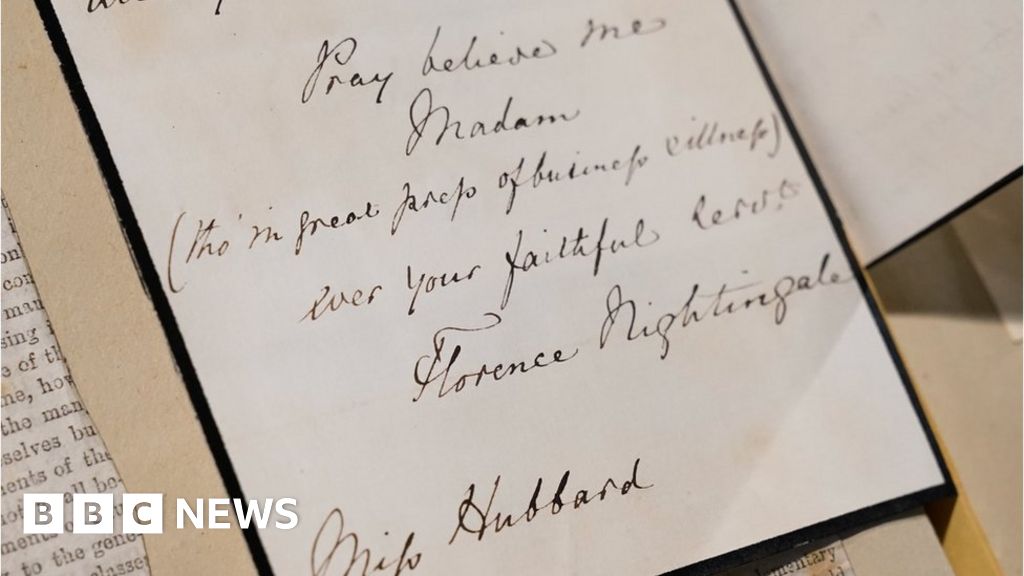 Pray believe me
Madam
(tho' in great press of business & illness)
ever your faithful serv.t
Florence Nightingale
Miss Hubbard
con
man
sing
e of th
me, how
the man
selves bu
ments of the
be-
ments
to the gene
classe
BBC NEWS